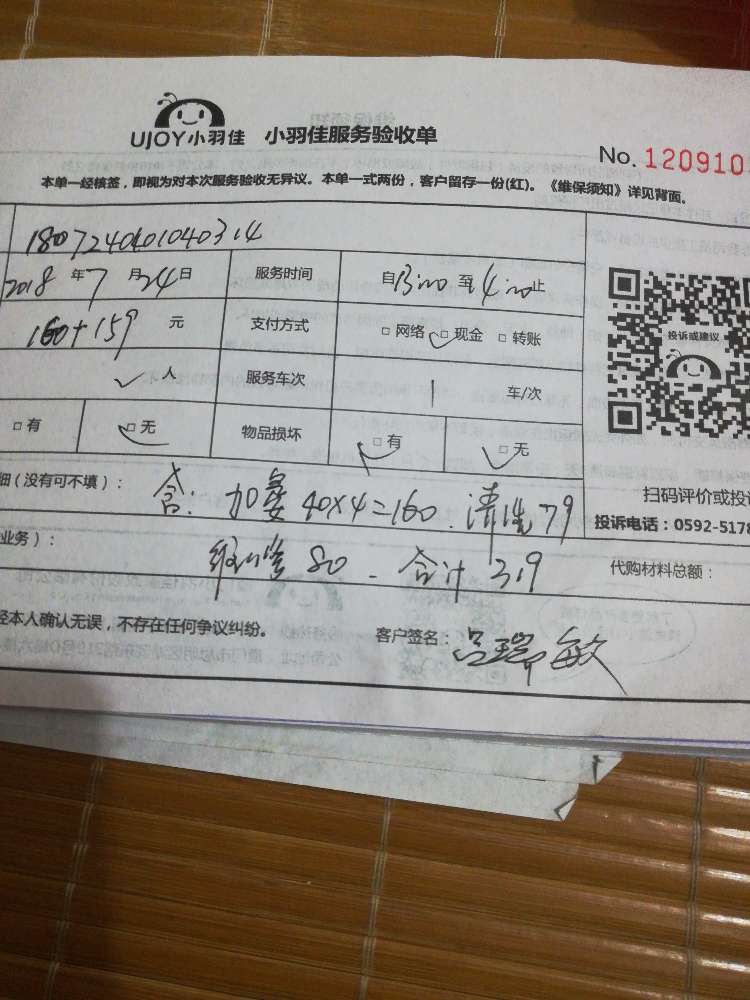 UJOY小羽佳 小羽佳服务验收单
No. 120910
本单一经核签，即视为对本次服务验收无异议。本单一式两份，客户留存一份(红)。《维保须知》详见背面。
1807240401040314
2018 年 7 月 24 日 服务时间 自 13:00 至 4:00 止
160+159 元 支付方式 □ 网络 □ 现金 □ 转账
人 服务车次 1 车/次
□ 有 □ 无 物品损坏 □ 有 □ 无
投诉或建议
细（没有可不填）： 含：加氨 40X4=160．清洗79
扫码评价或投
投诉电话：0592-5178
业务）： 80 - 合计 319 代购材料总额：
经本人确认无误，不存在任何争议纠纷。 客户签名：吕瑞敏